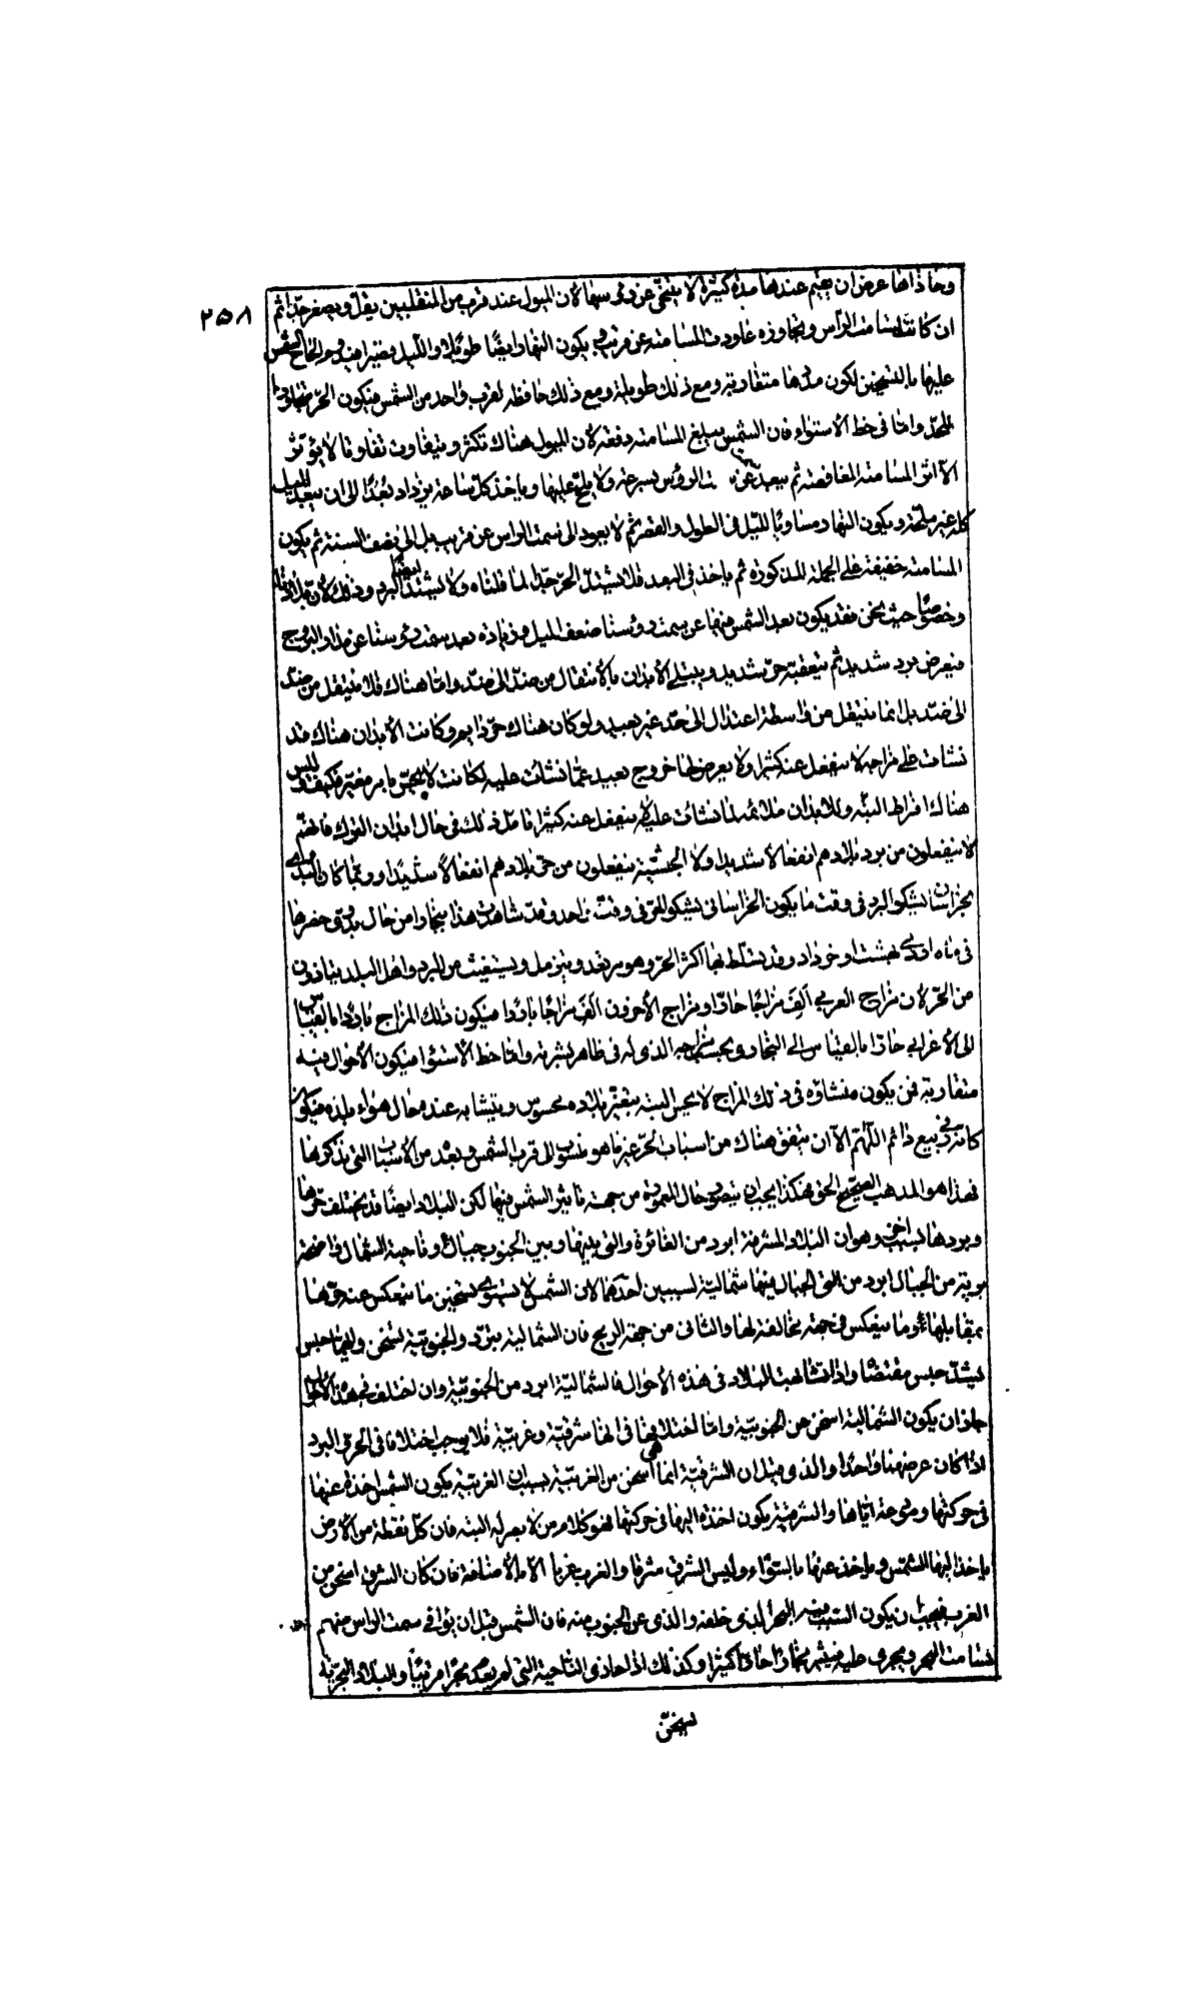 ٢٥٨
وحاذاها عرض ان يقيم عندها مدة كثيرة لا يتنحى عن رؤسها لان الميول عند قرب من المنقلبين يقل ويصغر جدا ثم
ان كانت سامتت الرأس وتجاوزه عاودت المسامتة عن قريب ويكون النهار ايضا طويلا والليل قصيرا فيدوم الحاح الشمس
عليها بالتسخين لكون مدتها متقاربة ومع ذلك طويلة ومع ذلك حافظه لقرب واحد من الشمس فيكون الحر متجاوزا
للحد واما فى خط الاستواء فان الشمس يبلغ المسامتة دفعة لان الميول هناك تكثر ويتفاوت تفاوتا لا يؤثر
الا اثر المسامتة المغافصة ثم يبعد عن سمت الرؤس بسرعة ولا يلح عليها وياخذ كل ساعة يزداد بعدا الى ان يبعد الميل
كله غير ملحة ويكون النهار مساويا لليل فى الطول والقصر ثم لا يعود الى سمت الراس عن قريب بل الى نصف السنة ثم يكون
المسامتة خفيفة على الجملة المذكورة ثم ياخذ فى البعد فلا يشتد الحر جدا لما قلناه ولا يشتد ايضا البرد وذلك لان بلادنا
وخصوصا حيث يسخن فقد يكون بعد الشمس فيها عن سمت رؤسنا ضعف الميل وزيادة بعد سمت رؤسنا عن مدار البروج
فيعرض برد شديد ثم يتعقبه حر شديد ويبتلى الابدان بالانتقال من ضد الى ضد واما هناك فلا ينتقل من ضد
الى ضد بل انما ينتقل من واسطة اعتدال الى حد غير بعيد ولو كان هناك حر دايم وكانت الابدان هناك قد
نشات على مزاجه لا ينفعل عنه كثيرا ولا يعرض لها خروج بعيد عما نشات عليه لكانت لا يحس بامر مغير فكيف وليس
هناك افراط البتة وللابدان ملائمة لما نشات عليه لا ينفعل عنه كثيرا تامل ذلك فى حال ابدان الترك فانهم
لا ينفعلون من برد بلادهم انفعالا شديدا ولا الحبشية ينفعلون من حر بلادهم انفعالا شديدا وربما كان البدوى
بخراسان يشكو البرد فى وقت ما يكون الخراسانى يشكو الحر فى وقت واحد وقد شاهدت هذا ببخارا من حال بدوى حضرها
فى ماه ارديبهشت او خرداد وقد تسلط بها اكثر الحر وهو يرتعد ويتزمل ويستغيث من البرد واهل البلد يتاذون
من الحر لان مزاج العربى الف مزاجا حارا ومزاج الاخرون الف مزاجا باردا فيكون ذلك المزاج باردا بالقياس
الى الاعرابى حارا بالقياس الى البخارى وبحسب مزاجه الذى له فى ظاهر بشرته واما خط الاستوا فيكون الاحوال فيه
متقاربة فمن يكون منشاؤه فى ذلك المزاج لا يحس البتة بتغير بلاده محسوس ويتشابه عنده حال هواء بلده فيكون
كانه فى ربيع دائم اللهم الا ان يتفق هناك من اسباب الحر غير ما هو منسوب الى قرب الشمس وبعد من الاسباب التى نذكرها
فهذا هو المذهب الصحيح الحق فهكذا يجب ان يتصور حال المعمورة من جهة تاثير الشمس فيها لكن البلاد ايضا قد يختلف حرها
وبردها لسبب اخر وهو ان البلاد المشرفة ابرد من الغائرة والتى بينها وبين الجنوب جبال وناحية الشمال
برية من الجبال ابرد من التى الجبال منها شمالية لسببين احدهما لان الشمس لا يستوى تسخين ما ينعكس عنه حرها
بمقابلها وما ينعكس فى جهة مخالفة لها والثانى من جهة الريح فان الشمالية يبرد والجنوبية تسخن وايهما حبس
يشتد حبس مقتضاه واذا تشابهت البلاد فى هذه الاحوال فالشمالية ابرد من الجنوبية وان اختلف فى هذه الاحوال
جاز ان يكون الشمالية اسخن من الجنوبية واما اختلافها فى انها شرقية وغربية فلا يوجب اختلافا فى الحر والبرد
اذا كان عرضهما واحدا والذى من ان الشرقية انما هى اسخن من الغربية بسبب ان الغربية يكون الشمس اخذة عنها
فى حركتها ومودعة اياها والشرقية يكون اخذة اليها فى حركتها فهو كلام من لا بصر له البتة فان كل نقطة من الارض
ياخذ اليها الشمس وياخذ عنها بالسواء وليس الشرق مشرقا والغرب غربا الا بالاضافة فان كان الشرق اسخن من
الغرب فيجب ان يكون السبب فيه البحر الذى خلفه والذى عن الجنوب منه فان الشمس قبل ان يوافى سمت الراس منهم
تسامت البحر ويجرى عليه فيثير بخارا حارا كثيرا وكذلك اذا حاذى الناحية التى لم يكن بحرا قريبا والبلاد البحرية
يسخن